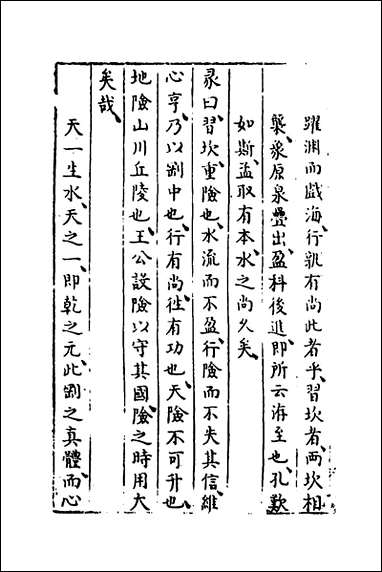 躍淵而戲海行孰有尚此者乎習坎者兩坎相
襲象原泉疊出盈科後進即所云洊至也孔歎
如斯孟取有本水之尚久矣
彖曰習坎重險也水流而不盈行險而不失其信維
心亨乃以剛中也行有尚徃有功也天險不可升也
地險山川丘陵也王公設險以守其國險之時用大
矣哉
天一生水天之一即乾之元此剛之真體而心